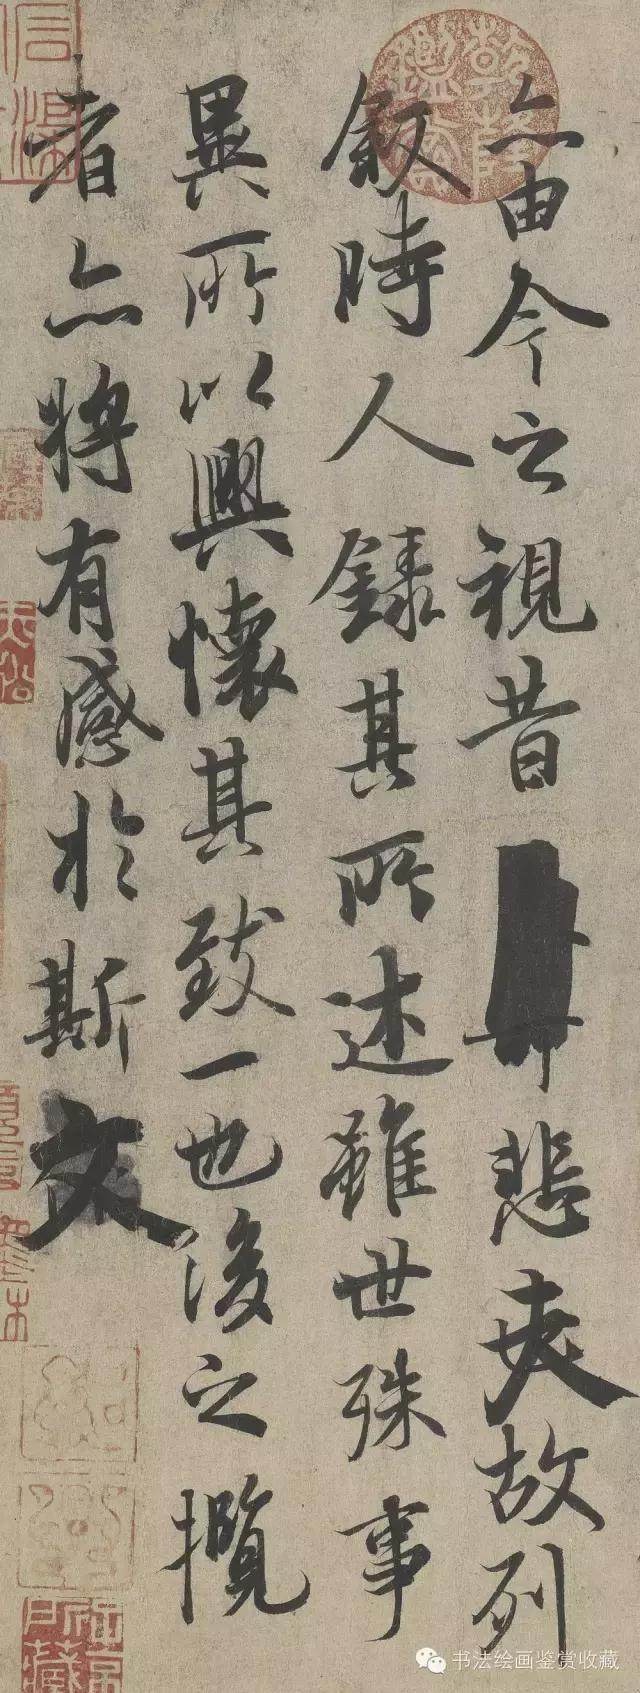 亦由今之視昔悲夫故列
叙時人錄其所述雖世殊事
異所以興懷其致一也後之攬
者亦將有感於斯文
乾隆鑑賞
书法绘画鉴赏收藏